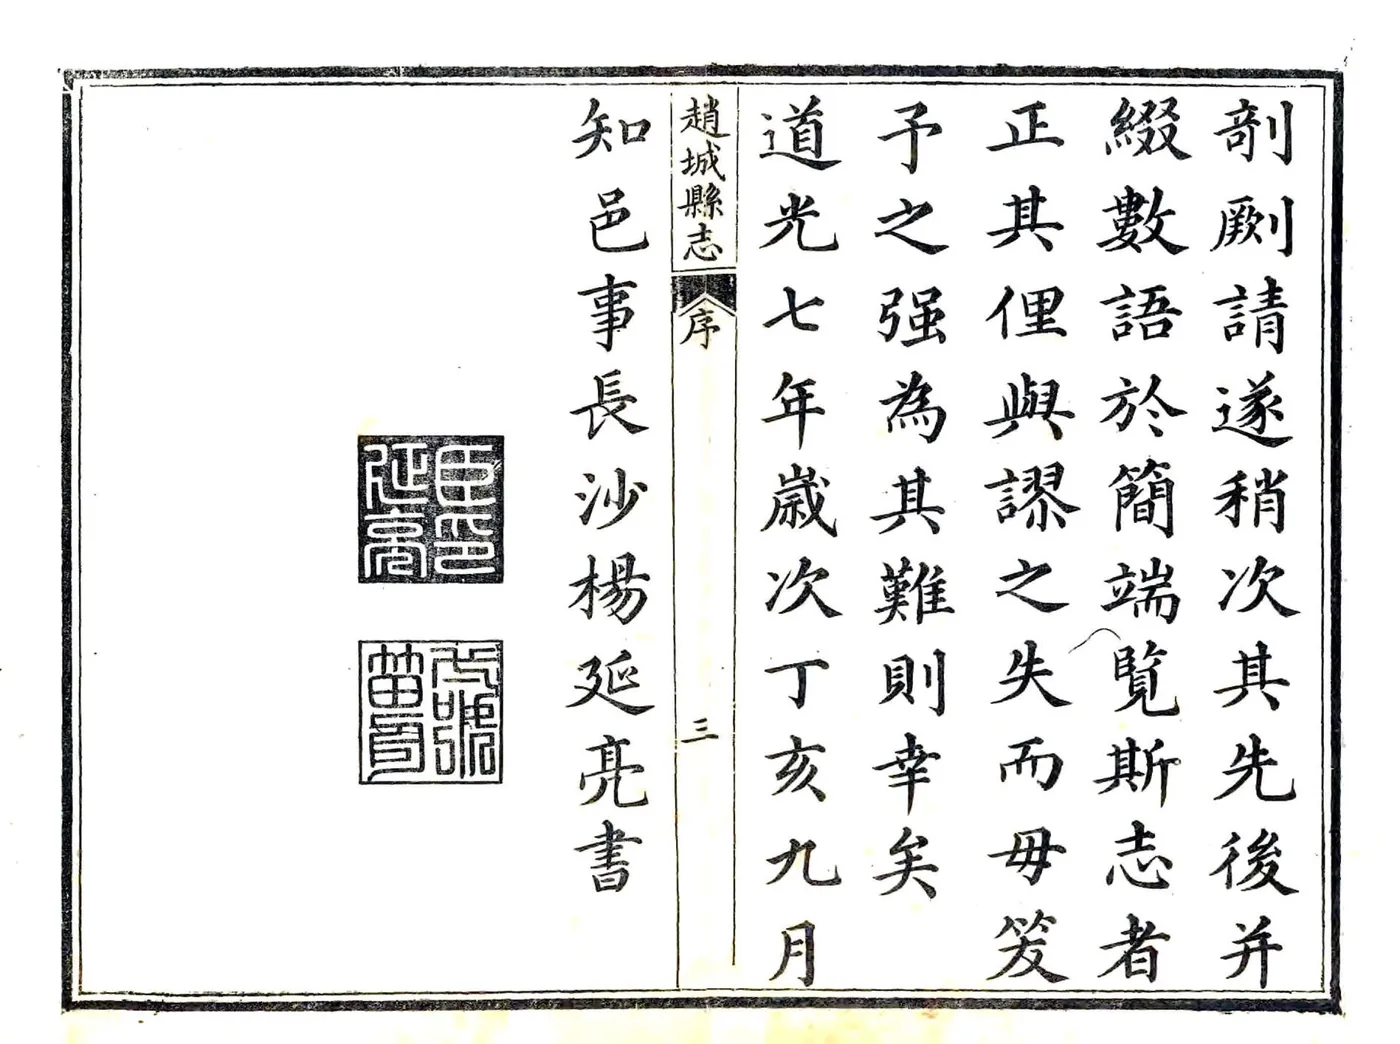 剞劂請遂稍次其先後并
綴數語於簡端覽斯志者
正其俚與謬之失而毋笑
予之强為其難則幸矣
道光七年歲次丁亥九月
趙城縣志
序
三
知邑事長沙楊延亮書
臣印
延亮